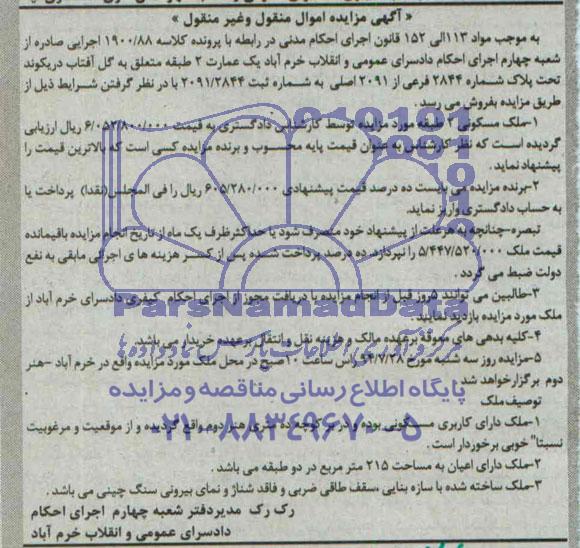 « آگهی مزایده اموال منقول وغیر منقول »
به موجب مواد ۱۱۳الی ۱۵۲ قانون اجرای احکام مدنی در رابطه با پرونده کلاسه ۱۹۰۰/۸۸ اجرایی صادره از
شعبه چهارم اجرای احکام دادسرای عمومی و انقلاب خرم آباد یک عمارت ۲ طبقه متعلق به گل آفتاب دریکوند
تحت پلاک شماره ۲۸۴۴ فرعی از ۲۰۹۱ اصلی به شماره ثبت ۲۰۹۱/۲۸۴۴ با در نظر گرفتن شرایط ذیل از
طریق مزایده بفروش می رسد .
۱-ملک مسکونی ۲ طبقه مورد مزایده توسط کارشناس دادگستری به قیمت ۶/۰۵۲/۸۰۰/۰۰۰ ریال ارزیابی
گردیده است که نظر کارشناس به عنوان قیمت پایه محسوب و برنده مزایده کسی است که بالاترین قیمت را
پیشنهاد نماید .
۲-برنده مزایده می بایست ده درصد قیمت پیشنهادی ۶۰۵/۲۸۰/۰۰۰ ریال را فی المجلس(نقدا) پرداخت یا
به حساب دادگستری واریز نماید.
تبصره-چنانچه به هرعلت از پیشنهاد خود منصرف شود یا حداکثرظرف یک ماه از تاریخ انجام مزایده باقیمانده
قیمت ملک ۵/۴۴۷/۵۲۰/۰۰۰ را نپردازد، ده درصد پرداخت شده پس از کسر هزینه ها ی اجرائی مابقی به نفع
دولت ضبط می گردد .
۳-طالبین می توانند ۵روز قبل از انجام مزایده با دریافت مجوز از اجرای احکام کیفری دادسرای خرم آباد از
ملک مورد مزایده بازدید نمایند.
۴-کلیه بدهی های معوقه برعهده مالک و هزینه نقل و انتقال برعهده خریدار می باشد.
۵-مزایده روز سه شنبه مورخ ۹۴/۷/۲۸ راس ساعت ۱۰صبح در محل ملک مورد مزایده واقع در خرم آباد -هنر
دوم برگزارخواهد شد
توصیف ملک
۱-ملک دارای کاربری مسکونی بوده و در بر کوچه ده متری هنر دوم واقع گردیده و از موقعیت و مرغوبیت
نسبتا" خوبی برخوردار است .
۲-ملک دارای اعیان به مساحت ۲۱۵ متر مربع در دو طبقه می باشد .
۳-ملک ساخته شده با سازه بنایی ،سقف طاقی ضربی و فاقد شناژ و نمای بیرونی سنگ چینی می باشد .
رک رک مدیردفتر شعبه چهارم اجرای احکام
دادسرای عمومی و انقلاب خرم آباد
ParsNamadData
پایگاه اطلاع رسانی مناقصه و مزایده
۰۲۱-۸۸۳۴۹۶۷۰-۵